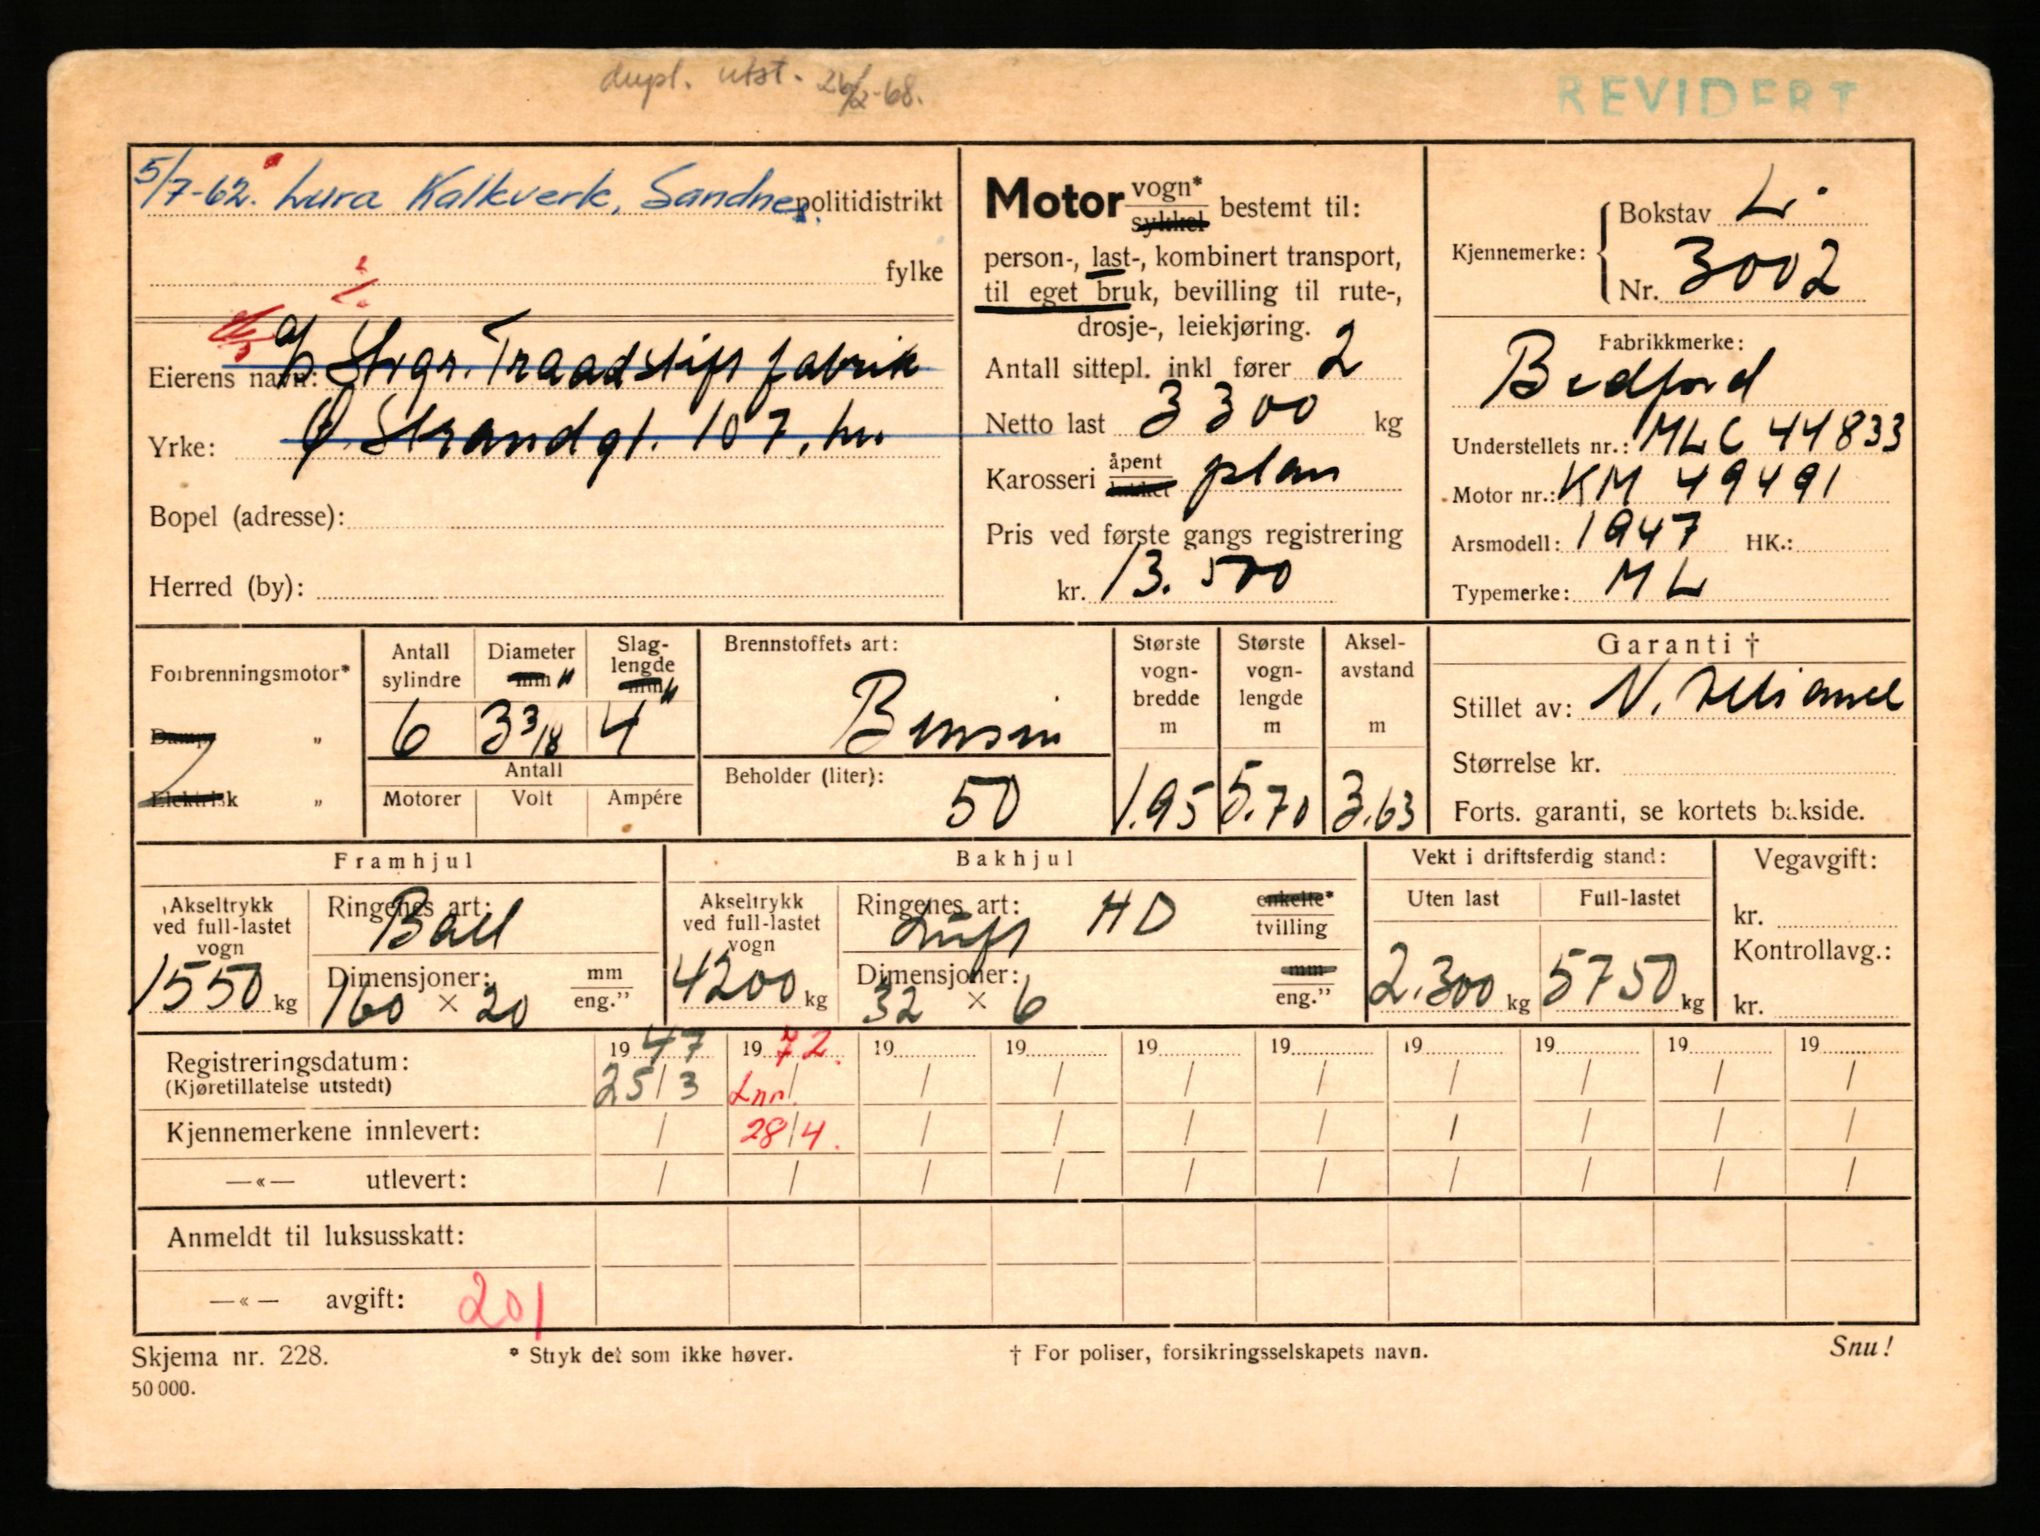 dupl. utst. 26/2-68.
REVIDERT
5/7-62. Lura Kalkverk, Sandnes. politidistrikt
fylke
Eierens navn: A/S Stvgr. Traadstift fabrik
Yrke: Ø. Strandgt. 107,
Bopel (adresse):
Herred (by):
Motor vogn* sykkel bestemt til:
person-, last-, kombinert transport,
til eget bruk, bevilling til rute-,
drosje-, leiekjøring.
Antall sittepl. inkl fører 2
Netto last 3300 kg
Karosseri åpent lukket plan
Pris ved første gangs registrering
kr. 13.500
Kjennemerke: Bokstav L.
Nr. 3002
Fabrikkmerke:
Bedford
Understellets nr.: MLC 44833
Motor nr.: KM 49491
Arsmodell: 1947 HK.:
Typemerke: ML
Forbrenningsmotor*
Damp "
Elektrisk "
Antall sylindre
Diameter mm "
Slag-lengde mm "
6 3 3/18 4
Antall
Motorer Volt Ampére
Brennstoffets art:
Bensin
Beholder (liter): 50
Største vogn-bredde m
1.95
Største vogn-lengde m
5.70
Aksel-avstand m
3.63
Garanti †
Stillet av: N.
Størrelse kr.
Forts. garanti, se kortets bakside.
Framhjul
Akseltrykk ved full-lastet vogn
1550 kg
Ringenes art: Ball
Dimensjoner: mm
160 × 20 eng."
Bakhjul
Akseltrykk ved full-lastet vogn
4200 kg
Ringenes art: Luft HD enkelte* tvilling
Dimensjoner: mm
32 × 6 eng."
Vekt i driftsferdig stand:
Uten last Full-lastet
2.300 kg 5750 kg
Vegavgift:
kr.
Kontrollavg.:
kr.
Registreringsdatum: 1947 1972. 19 19 19 19 19 19 19 19
(Kjøretillatelse utstedt) 25/3 Lnr. / / / / / / / / /
Kjennemerkene innlevert: / 28/4. / / / / / / / /
—«— utlevert: / / / / / / / / / /
Anmeldt til luksusskatt:
—«— avgift: 201
Skjema nr. 228. * Stryk det som ikke høver. † For poliser, forsikringsselskapets navn. Snu!
50 000.